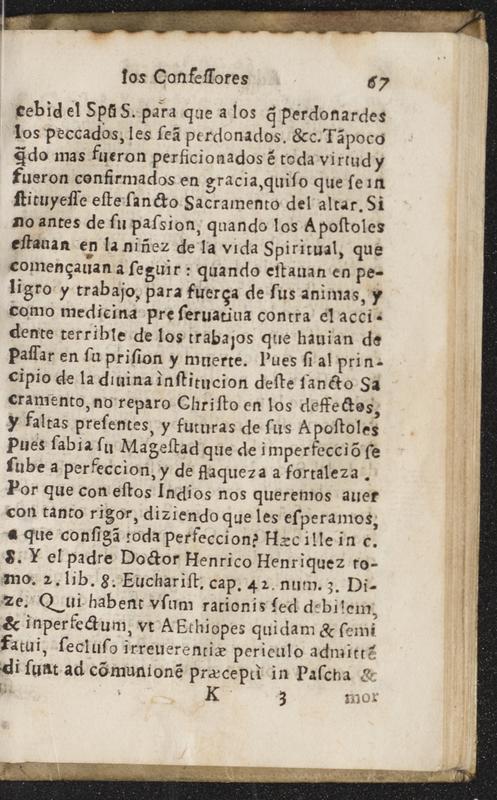 los Confeſſores 67
cebid el Spũ S. para que a los q̃ perdonardes
los peccados, les ſeã perdonados. &c. Tãpoco
q̃do mas fueron perficionados ẽ toda virtud y
fueron confirmados en gracia,quiſo que ſe in
ſtituyeſſe eſte ſancto Sacramento del altar. Si
no antes de ſu paſsion, quando los Apoſtoles
eſtauan en la niñez de la vida Spiritual, que
començauan a ſeguir : quando eſtauan en pe-
ligro y trabajo, para fuerça de ſus animas, y
como medicina preſeruatiua contra el acci-
dente terrible de los trabajos que hauian de
paſſar en ſu priſion y muerte. Pues ſi al prin-
cipio de la diuina inſtitucion deſte ſancto Sa
cramento, no reparo Chriſto en los deffectos,
y faltas preſentes, y futuras de ſus Apoſtoles
Pues ſabia ſu Mageſtad que de imperfecciõ ſe
ſube a perfeccion, y de flaqueza a fortaleza .
Por que con eſtos Indios nos queremos auer
con tanto rigor, diziendo que les eſperamos,
a que conſigã toda perfeccion? Hæc ille in c.
8. Y el padre Doctor Henrico Henriquez to-
mo. 2. lib. 8. Euchariſt. cap. 42. num. 3. Di-
ze. Qui habent vſum rationis ſed debilem,
& inperfectum, vt AEthiopes quidam & ſemi
fatui, ſecluſo irreuerentiæ periculo admittẽ
di ſunt ad cõmunionẽ præcepti in Paſcha &
K 3 mor